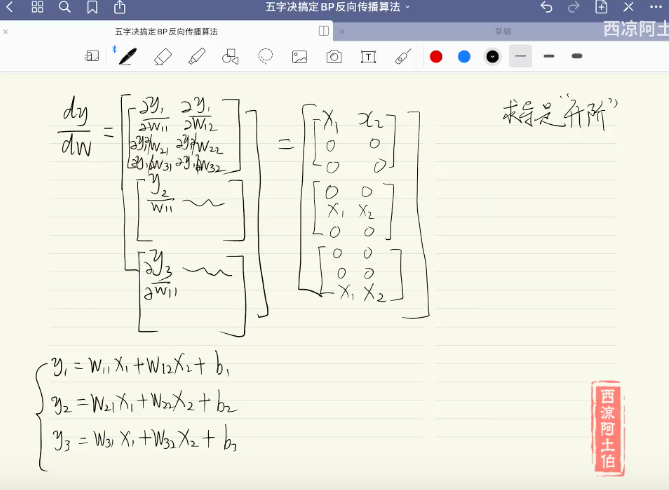 五字决搞定BP反向传播算法
五字决搞定BP反向传播算法
草稿
西凉阿土
求导是“升阶”
dy/dw = [[∂y₁/∂w₁₁ ∂y₁/∂w₁₂
∂y₁/∂w₂₁ ∂y₁/∂w₂₂
∂y₁/∂w₃₁ ∂y₁/∂w₃₂]
[y₂/w₁₁ ~~]
[∂y₃/∂w₁₁ ~~]]
= [[x₁ x₂
0 0
0 0]
[0 0
x₁ x₂
0 0]
[0 0
0 0
x₁ x₂]]
{ y₁ = w₁₁x₁ + w₁₂x₂ + b₁
y₂ = w₂₁x₁ + w₂₂x₂ + b₂
y₃ = w₃₁x₁ + w₃₂x₂ + b₃
西凉阿土伯